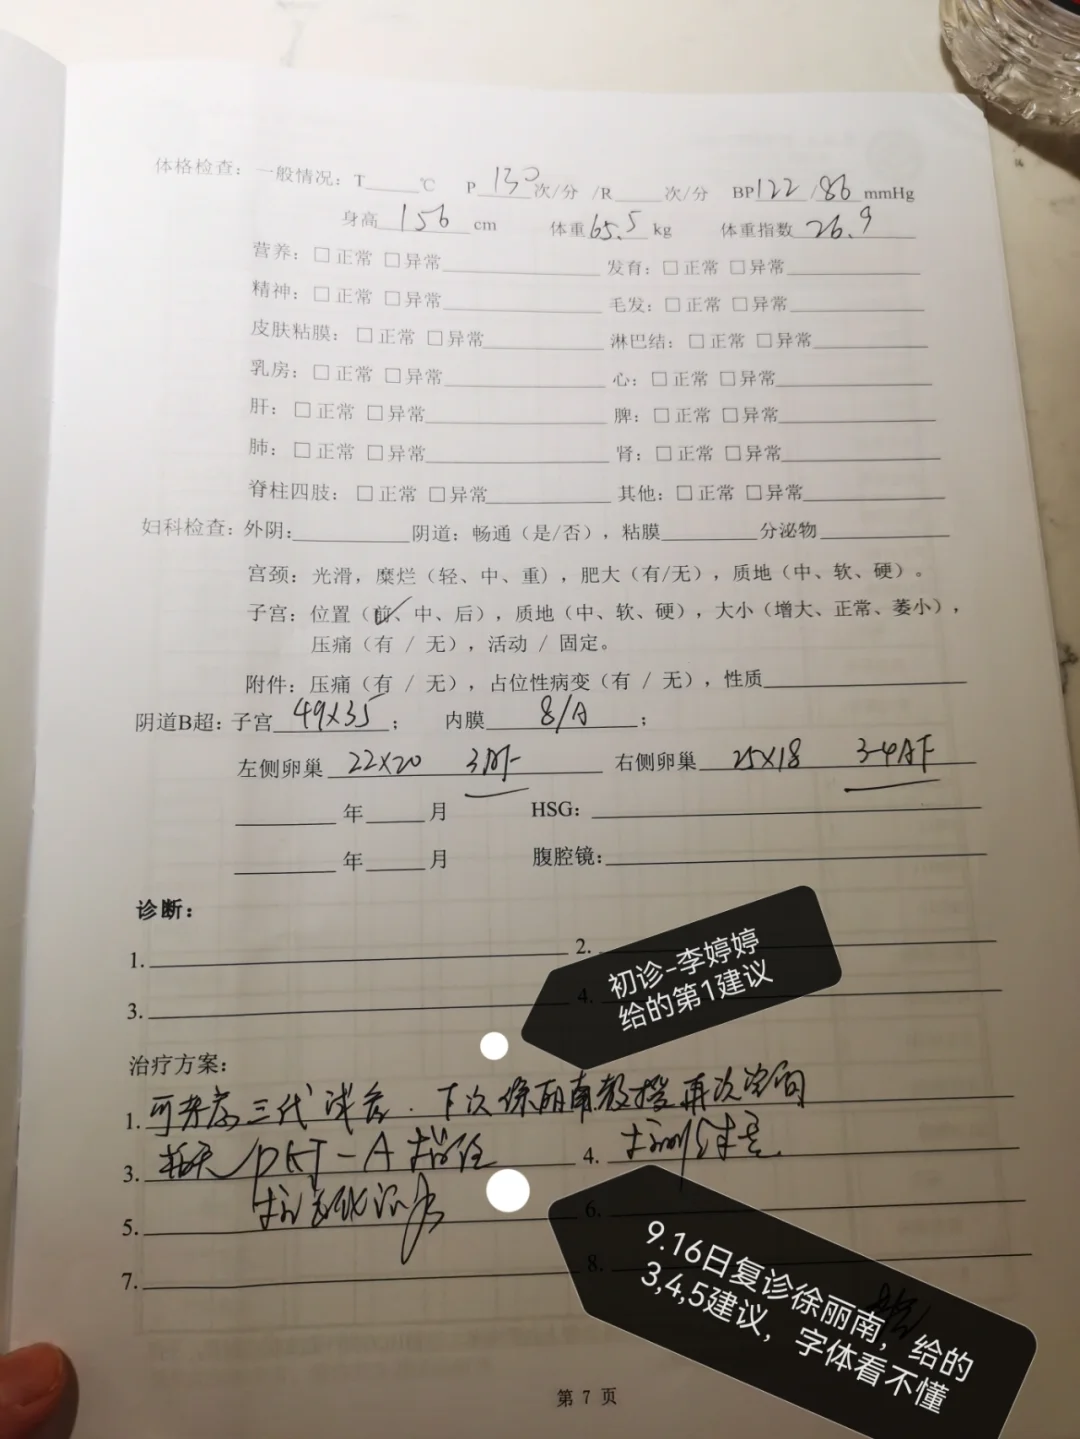 体格检查：一般情况：T____℃ P 130 次/分 /R____次/分 BP 122/86 mmHg
身高 156 cm 体重 65.5 kg 体重指数 26.9
营养：□正常 □异常____ 发育：□正常 □异常____
精神：□正常 □异常____ 毛发：□正常 □异常____
皮肤粘膜：□正常 □异常____ 淋巴结：□正常 □异常____
乳房：□正常 □异常____ 心：□正常 □异常____
肝：□正常 □异常____ 脾：□正常 □异常____
肺：□正常 □异常____ 肾：□正常 □异常____
脊柱四肢：□正常 □异常____ 其他：□正常 □异常____
妇科检查：外阴：____阴道：畅通（是/否），粘膜____分泌物____
宫颈：光滑，糜烂（轻、中、重），肥大（有/无），质地（中、软、硬）。
子宫：位置（前✓、中、后），质地（中、软、硬），大小（增大、正常、萎小），
压痛（有 / 无），活动 / 固定。
附件：压痛（有 / 无），占位性病变（有 / 无），性质____
阴道B超：子宫 49×35； 内膜 8/A；
左侧卵巢 22×20 3AF 右侧卵巢 25×18 3-4AF
____年____月 HSG：____
____年____月 腹腔镜：____
诊断：
1.____ 2.____
3.____ 4.____
初诊-李婷婷
给的第1建议
治疗方案：
1. 可考虑三代试管．下次徐丽南教授再次咨询
3. PGT-A 4.
5. 6.
7. 8.
9.16日复诊徐丽南，给的
3,4,5建议，字体看不懂
第 7 页